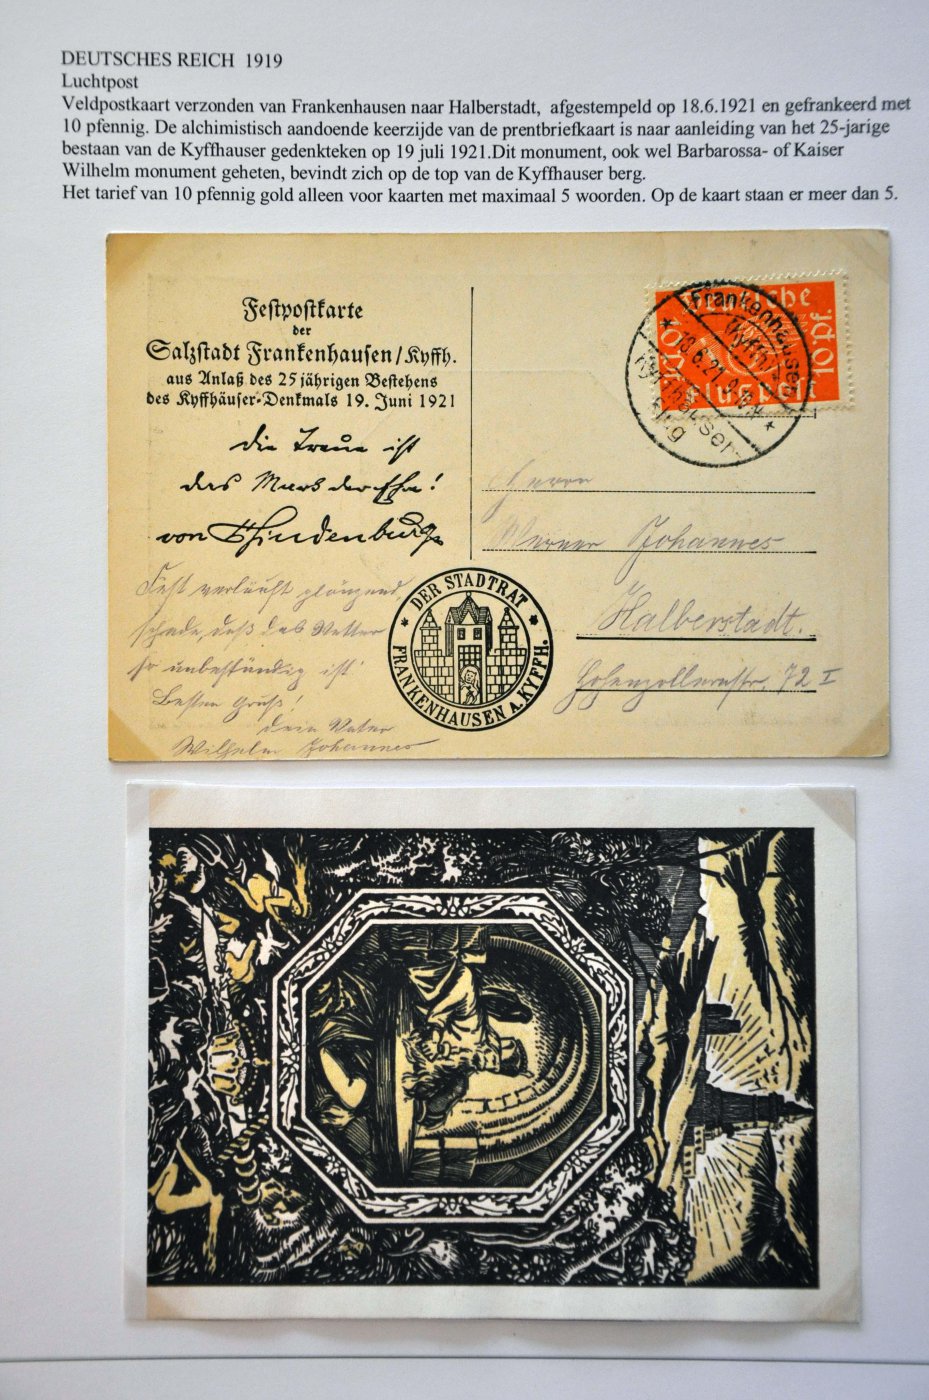 DEUTSCHES REICH 1919
Luchtpost
Veldpostkaart verzonden van Frankenhausen naar Halberstadt, afgestempeld op 18.6.1921 en gefrankeerd met
10 pfennig. De alchimistisch aandoende keerzijde van de prentbriefkaart is naar aanleiding van het 25-jarige
bestaan van de Kyffhauser gedenkteken op 19 juli 1921.Dit monument, ook wel Barbarossa- of Kaiser
Wilhelm monument geheten, bevindt zich op de top van de Kyffhauser berg.
Het tarief van 10 pfennig gold alleen voor kaarten met maximaal 5 woorden. Op de kaart staan er meer dan 5.
Festpostkarte
der
Salzstadt Frankenhausen/Kyffh.
aus Anlaß des 25 jährigen Bestehens
des Kyffhäuser-Denkmals 19. Juni 1921
die Treue ist
das Mark der Ehre!
von Hindenburg
Fest verläuft glänzend,
schade, daß das Wetter
so unbeständig ist!
Besten Gruß!
dein Vater
Wilhelm Johannes
Deutsche
10 Pf. 10 Pf.
Flugpost
Frankenhausen
(Kyffh.)
18.6.21
Kyffhäuser-
flug
Herrn
Werner Johannes
Halberstadt.
Hohenzollernstr. 72 I
DER STADTRAT
FRANKENHAUSEN A. KYFFH.